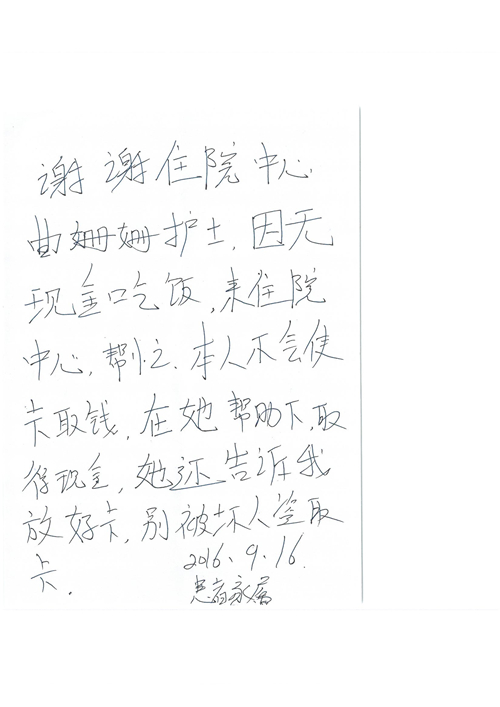 谢谢住院中心
曲姗姗护士，因无
现金口吃饭，来住院
中心，帮忙．本人不会使
卡取钱，在她帮助下，取
得现金，她还告诉我
放好卡，别被坏人盗取
卡．
2016、9、16．
患者家属